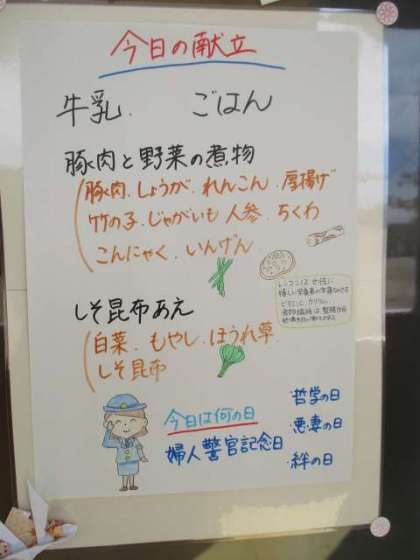 今日の献立
牛乳. ごはん
豚肉と野菜の煮物
(豚肉.しょうが.れんこん.厚揚げ
竹の子.じゃがいも 人参.ちくわ
こんにゃく.いんげん
しそ昆布あえ
(白菜.もやし.ほうれん草.
しそ昆布
今日は何の日
婦人警官記念日
・哲学の日
・悪妻の日
・絆の日